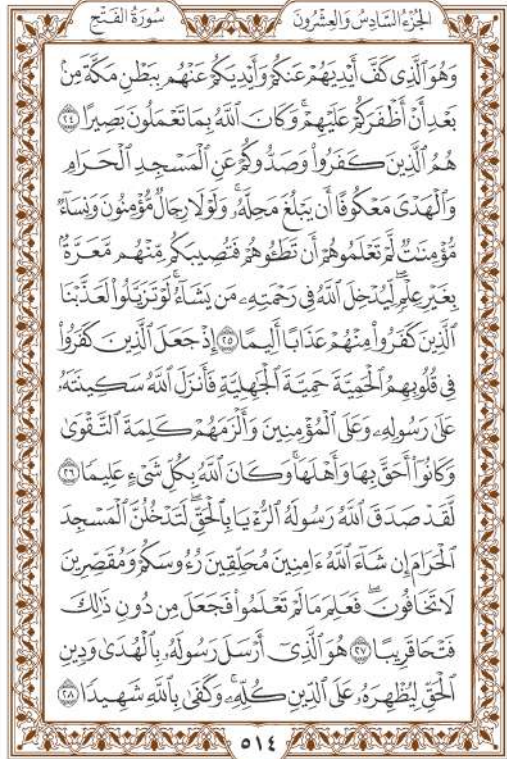 الجُزْءُ السَّادِسُ وَالعِشْرُونَ
سُورَةُ الفَتْحِ
وَهُوَ ٱلَّذِى كَفَّ أَيْدِيَهُمْ عَنكُمْ وَأَيْدِيَكُمْ عَنْهُم بِبَطْنِ مَكَّةَ مِنۢ
بَعْدِ أَنْ أَظْفَرَكُمْ عَلَيْهِمْ ۚ وَكَانَ ٱللَّهُ بِمَا تَعْمَلُونَ بَصِيرًا ٢٤
هُمُ ٱلَّذِينَ كَفَرُوا۟ وَصَدُّوكُمْ عَنِ ٱلْمَسْجِدِ ٱلْحَرَامِ
وَٱلْهَدْىَ مَعْكُوفًا أَن يَبْلُغَ مَحِلَّهُۥ ۚ وَلَوْلَا رِجَالٌ مُّؤْمِنُونَ وَنِسَآءٌ
مُّؤْمِنَٰتٌ لَّمْ تَعْلَمُوهُمْ أَن تَطَـُٔوهُمْ فَتُصِيبَكُم مِّنْهُم مَّعَرَّةٌۢ
بِغَيْرِ عِلْمٍ ۖ لِّيُدْخِلَ ٱللَّهُ فِى رَحْمَتِهِۦ مَن يَشَآءُ ۚ لَوْ تَزَيَّلُوا۟ لَعَذَّبْنَا
ٱلَّذِينَ كَفَرُوا۟ مِنْهُمْ عَذَابًا أَلِيمًا ٢٥ إِذْ جَعَلَ ٱلَّذِينَ كَفَرُوا۟
فِى قُلُوبِهِمُ ٱلْحَمِيَّةَ حَمِيَّةَ ٱلْجَٰهِلِيَّةِ فَأَنزَلَ ٱللَّهُ سَكِينَتَهُۥ
عَلَىٰ رَسُولِهِۦ وَعَلَى ٱلْمُؤْمِنِينَ وَأَلْزَمَهُمْ كَلِمَةَ ٱلتَّقْوَىٰ
وَكَانُوٓا۟ أَحَقَّ بِهَا وَأَهْلَهَا ۚ وَكَانَ ٱللَّهُ بِكُلِّ شَىْءٍ عَلِيمًا ٢٦
لَّقَدْ صَدَقَ ٱللَّهُ رَسُولَهُ ٱلرُّءْيَا بِٱلْحَقِّ ۖ لَتَدْخُلُنَّ ٱلْمَسْجِدَ
ٱلْحَرَامَ إِن شَآءَ ٱللَّهُ ءَامِنِينَ مُحَلِّقِينَ رُءُوسَكُمْ وَمُقَصِّرِينَ
لَا تَخَافُونَ ۖ فَعَلِمَ مَا لَمْ تَعْلَمُوا۟ فَجَعَلَ مِن دُونِ ذَٰلِكَ
فَتْحًا قَرِيبًا ٢٧ هُوَ ٱلَّذِىٓ أَرْسَلَ رَسُولَهُۥ بِٱلْهُدَىٰ وَدِينِ
ٱلْحَقِّ لِيُظْهِرَهُۥ عَلَى ٱلدِّينِ كُلِّهِۦ ۚ وَكَفَىٰ بِٱللَّهِ شَهِيدًا ٢٨
٥١٤